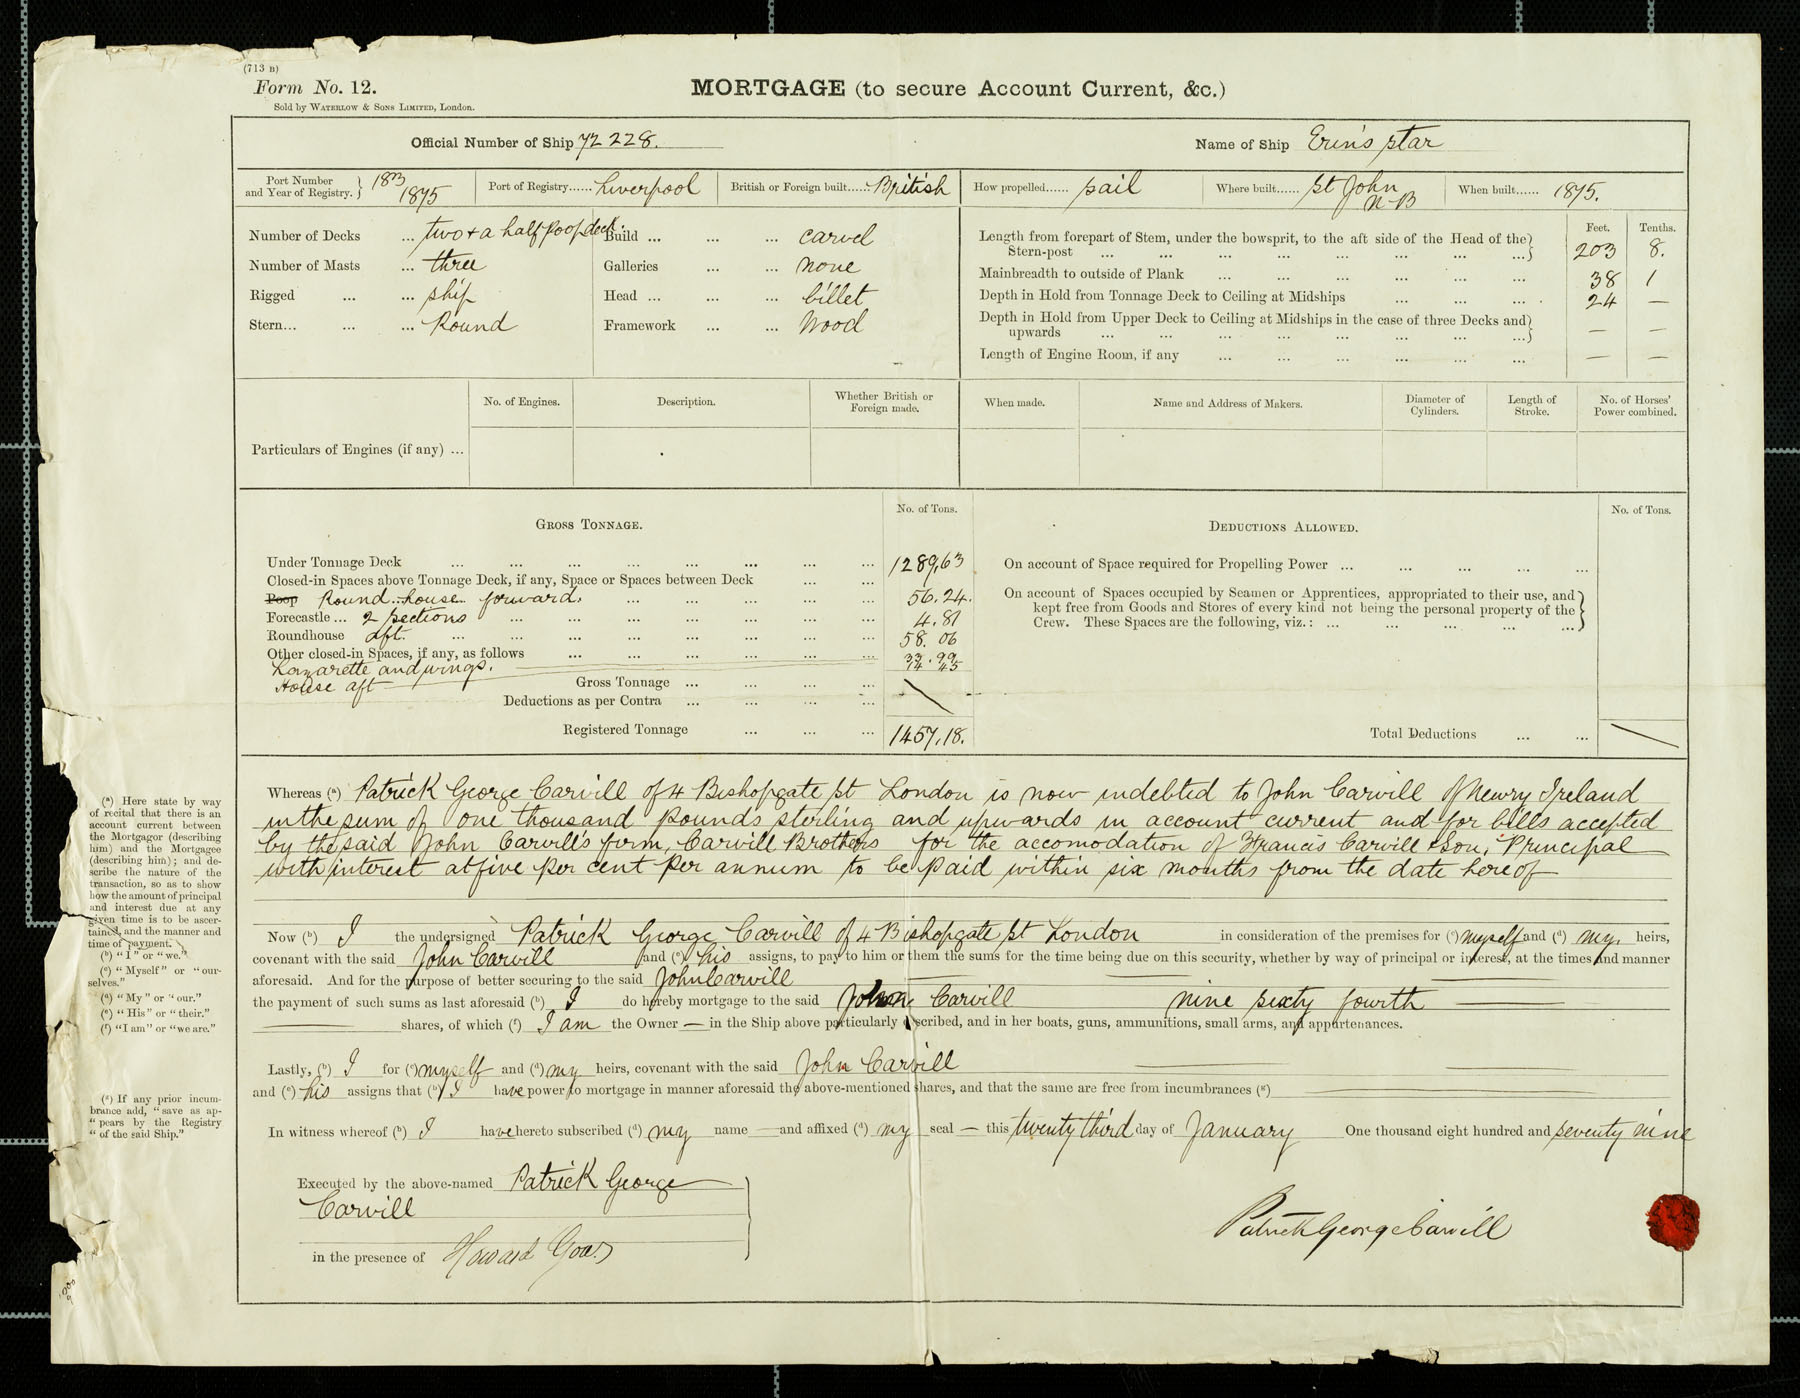 (713 B)
Form No. 12.
Sold by WATERLOW & SONS LIMITED, London.
MORTGAGE (to secure Account Current, &c.)
Official Number of Ship 72228.
Name of Ship Erin's Star
Port Number and Year of Registry. } 183/1875
Port of Registry...... Liverpool
British or Foreign built...... British
How propelled...... Sail
Where built...... St John N-B
When built...... 1875.
Number of Decks ... two + a half poop deck.
Number of Masts ... three
Rigged ... ... ship
Stern... ... ... Round
Build ... ... ... carvel
Galleries ... ... none
Head ... ... ... billet
Framework ... ... Wood
Feet. Tenths.
Length from forepart of Stem, under the bowsprit, to the aft side of the Head of the
Stern-post ... ... ... ... ... ... ... ...} 203 8.
Mainbreadth to outside of Plank ... ... ... ... ... ... 38 1
Depth in Hold from Tonnage Deck to Ceiling at Midships ... ... ... 24 —
Depth in Hold from Upper Deck to Ceiling at Midships in the case of three Decks and
upwards ... ... ... ... ... ... ... ...} — —
Length of Engine Room, if any ... ... ... ... ... ... — —
No. of Engines.
Description.
Whether British or Foreign made.
When made.
Name and Address of Makers.
Diameter of Cylinders.
Length of Stroke.
No. of Horses' Power combined.
Particulars of Engines (if any) ...
GROSS TONNAGE.
No. of Tons.
Under Tonnage Deck ... ... ... ... ... ... ... ... 1289.63
Closed-in Spaces above Tonnage Deck, if any, Space or Spaces between Deck ... ...
Poop Round house forward. ... ... ... ... ... 56.24.
Forecastle ... 2 sections ... ... ... ... ... ... ... 4.81
Roundhouse aft. ... ... ... ... ... ... ... ... 58.06
Other closed-in Spaces, if any, as follows ... ... ... ... ... ... 33.99
Lazarette and wings. 14 45
House aft
Gross Tonnage ... ... ... ...
Deductions as per Contra ... ... ... ...
Registered Tonnage ... ... ... 1457.18.
DEDUCTIONS ALLOWED.
No. of Tons.
On account of Space required for Propelling Power ... ... ... ... ...
On account of Spaces occupied by Seamen or Apprentices, appropriated to their use, and
kept free from Goods and Stores of every kind not being the personal property of the
Crew. These Spaces are the following, viz.: ... ... ... ... ...}
Total Deductions ... ...
Whereas (a) Patrick George Carvill of 4 Bishopgate St London is now indebted to John Carvill of Newry Ireland
in the sum of one thousand pounds sterling and upwards in account current and for bills accepted
by the said John Carvill's firm, Carvill Brothers for the accomodation of Francis Carvill & Son, Principal
with interest at five per cent per annum to be paid within six months from the date hereof
Now (b) I the undersigned Patrick George Carvill of 4 Bishopgate St London in consideration of the premises for (c) myself and (d) my, heirs,
covenant with the said John Carvill and (e) his assigns, to pay to him or them the sums for the time being due on this security, whether by way of principal or interest, at the times and manner
aforesaid. And for the purpose of better securing to the said John Carvill
the payment of such sums as last aforesaid (b) I do hereby mortgage to the said John Carvill nine sixty fourth
shares, of which (f) I am the Owner — in the Ship above particularly described, and in her boats, guns, ammunitions, small arms, and appurtenances.
Lastly, (b) I for (c) myself and (d) my heirs, covenant with the said John Carvill
and (e) his assigns that (b) I have power to mortgage in manner aforesaid the above-mentioned shares, and that the same are free from incumbrances (g)
In witness whereof (b) I have hereto subscribed (d) my name — and affixed (d) my seal — this twenty third day of January One thousand eight hundred and seventy nine
Executed by the above-named Patrick George
Carvill
in the presence of Howard
Patrick George Carvill
(a) Here state by way
of recital that there is an
account current between
the Mortgagor (describing
him) and the Mortgagee
(describing him); and de-
scribe the nature of the
transaction, so as to show
how the amount of principal
and interest due at any
given time is to be ascer-
tained, and the manner and
time of payment.
(b) "I" or "we."
(c) "Myself" or "our-
selves."
(d) "My" or "our."
(e) "His" or "their."
(f) "I am" or "we are."
(g) If any prior incum-
brance add, "save as ap-
"pears by the Registry
"of the said Ship."